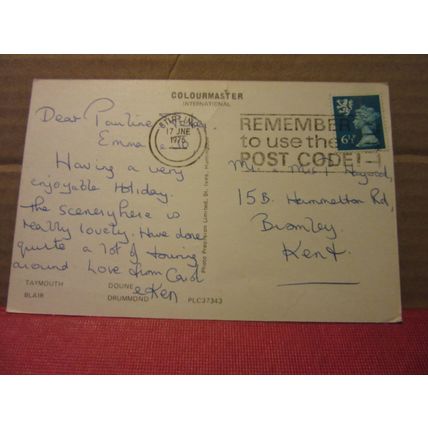 COLOURMASTER
INTERNATIONAL
Dear Pauline
Emma
Having a very
enjoyable Holiday.
The scenery here is
really lovely. Have done
quite a lot of touring
around. Love from Carol
& Ken
TAYMOUTH DOUNE
BLAIR DRUMMOND PLC37343
Photo Precision Limited, St. Ives,
STIRLING
17 JNE
1976
REMEMBER
to use the
POST CODE!
6½
Mr. & Mrs
15B. Hammelton Rd,
Bromley
Kent.